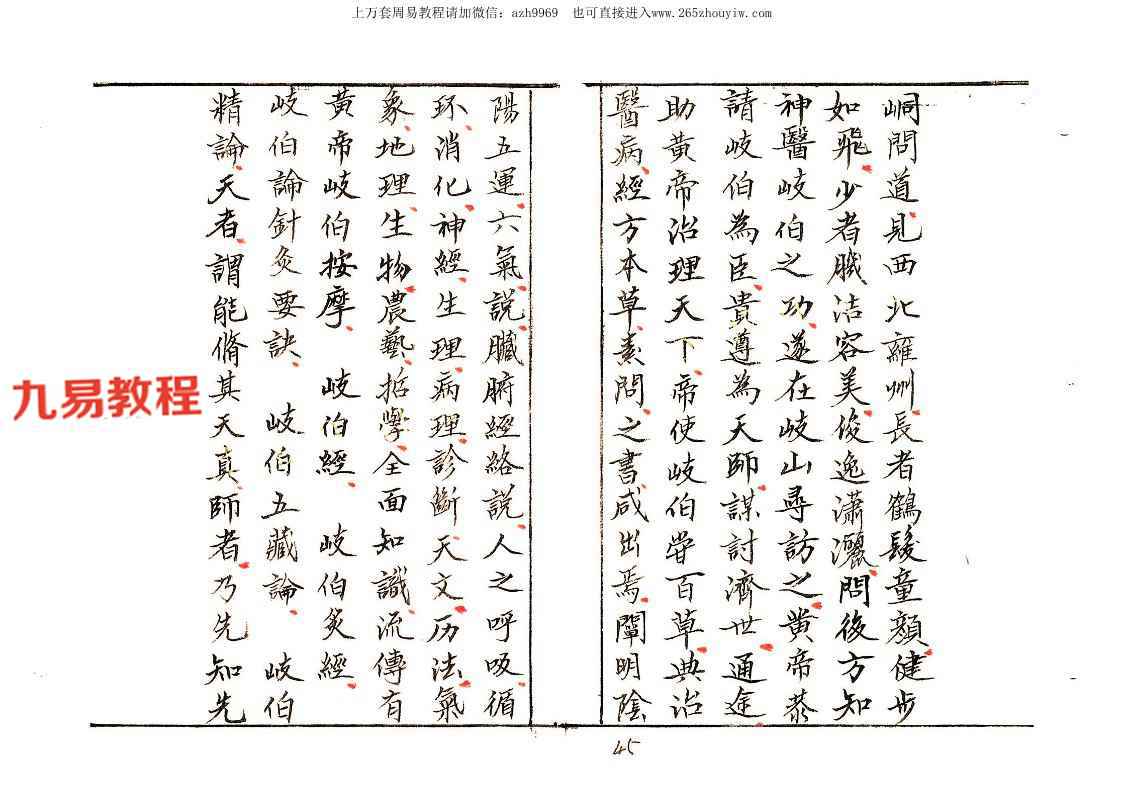 上万套周易教程请加微信：azh9969　也可直接进入www.265zhouyiw.com
峒問道、見西北雍州、長者鶴髮童顏、健步
如飛、少者膱洁容美、俊逸瀟灑、問後方知
神醫岐伯之功、遂在岐山尋訪之、黄帝恭
請岐伯為臣、貴遵為天師、謀討濟世、通途、
助黄帝治理天下、帝使岐伯嘗百草、典治
醫病、經方本草、素問、之書、咸出焉、闡明陰
陽五運、六氣、說、臟腑經絡說、人之呼吸、循
环、消化、神經、生理、病理、診斷、天文、历法、氣
象、地理、生物、農藝、哲學、全面知識、流傳有
黃帝岐伯按摩、　岐伯經、　岐伯炙經、
岐伯論針灸要訣、　岐伯五藏論、　岐伯
精論、天者、謂能脩其天真、師者、乃先知先
九易教程
45